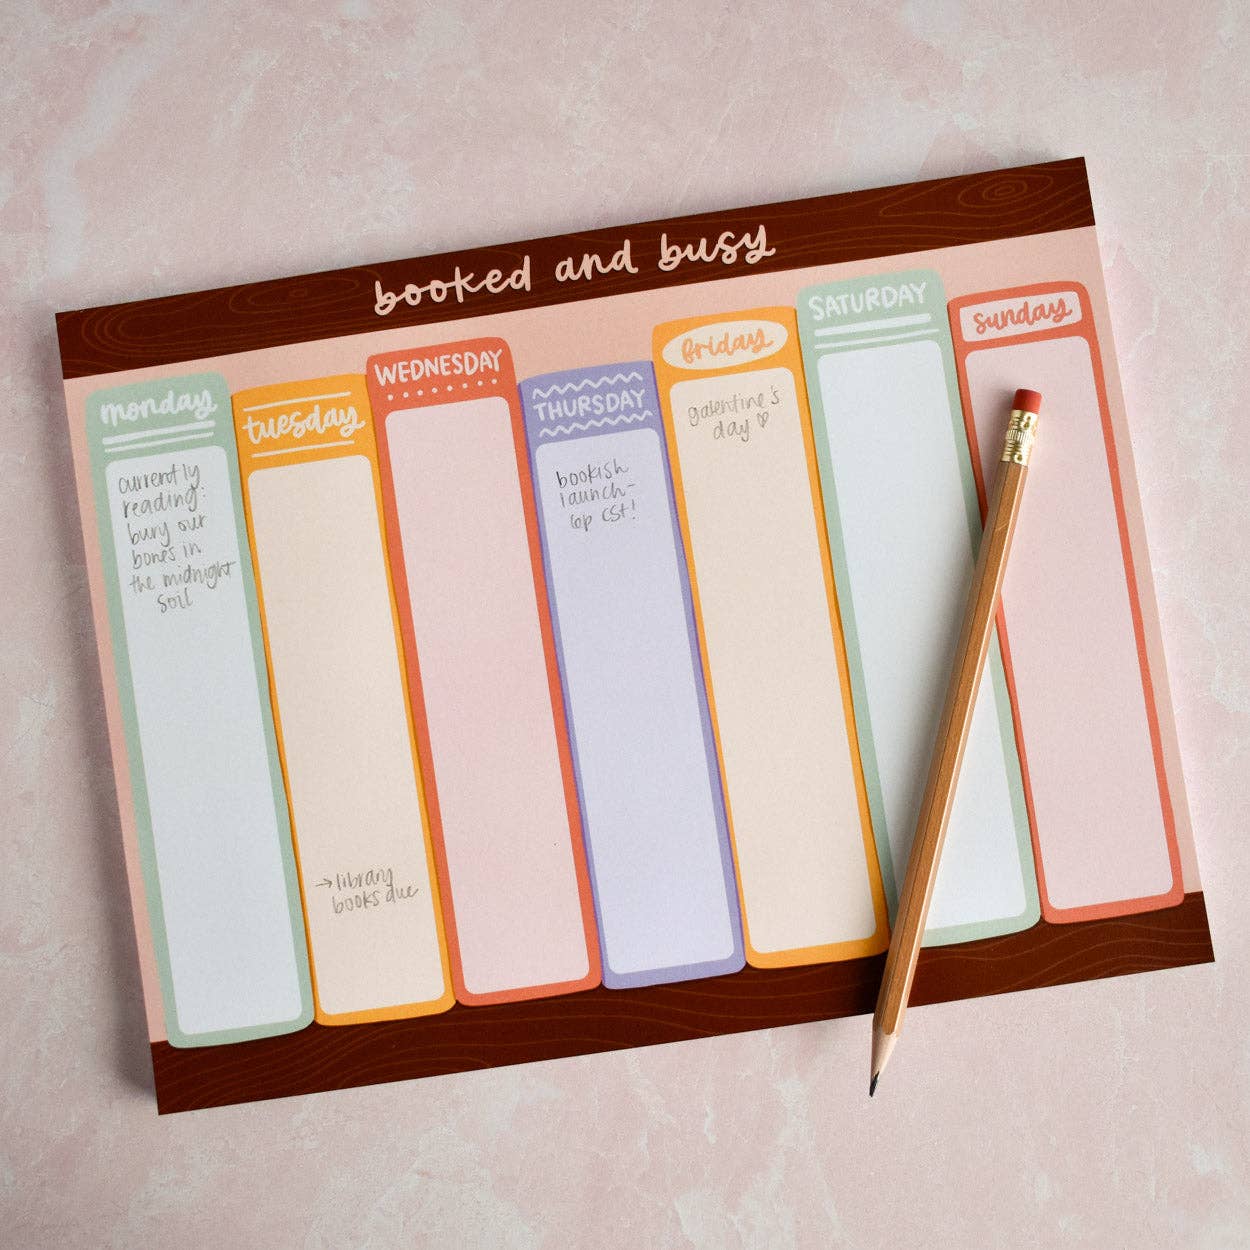 booked and busy
monday
currently
reading:
bury our
bones in
the midnight
soil
tuesday
→ library
books due
WEDNESDAY
THURSDAY
bookish
launch-
6p cst!
friday
galentine's
day ♡
SATURDAY
sunday